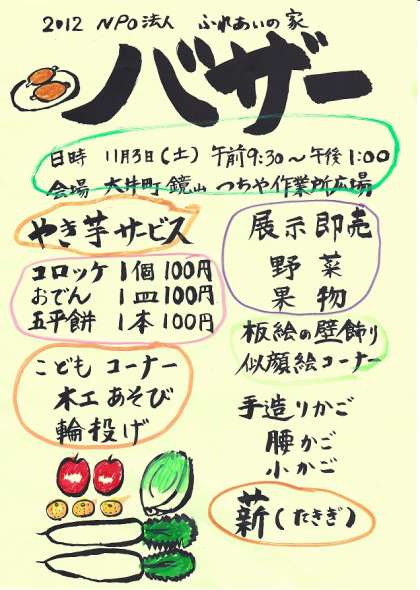 2012 NPO法人 ふれあいの家
バザー
日時 11月3日(土) 午前9:30～午後1:00
会場 大井町 鏡山 つちや作業所広場
やき芋サービス
コロッケ 1個 100円
おでん 1皿 100円
五平餅 1本 100円
こども コーナー
木工あそび
輪投げ
展示即売
野菜
果物
板絵の壁飾り
似顔絵コーナー
手造りかご
腰かご
小かご
薪(たきぎ)